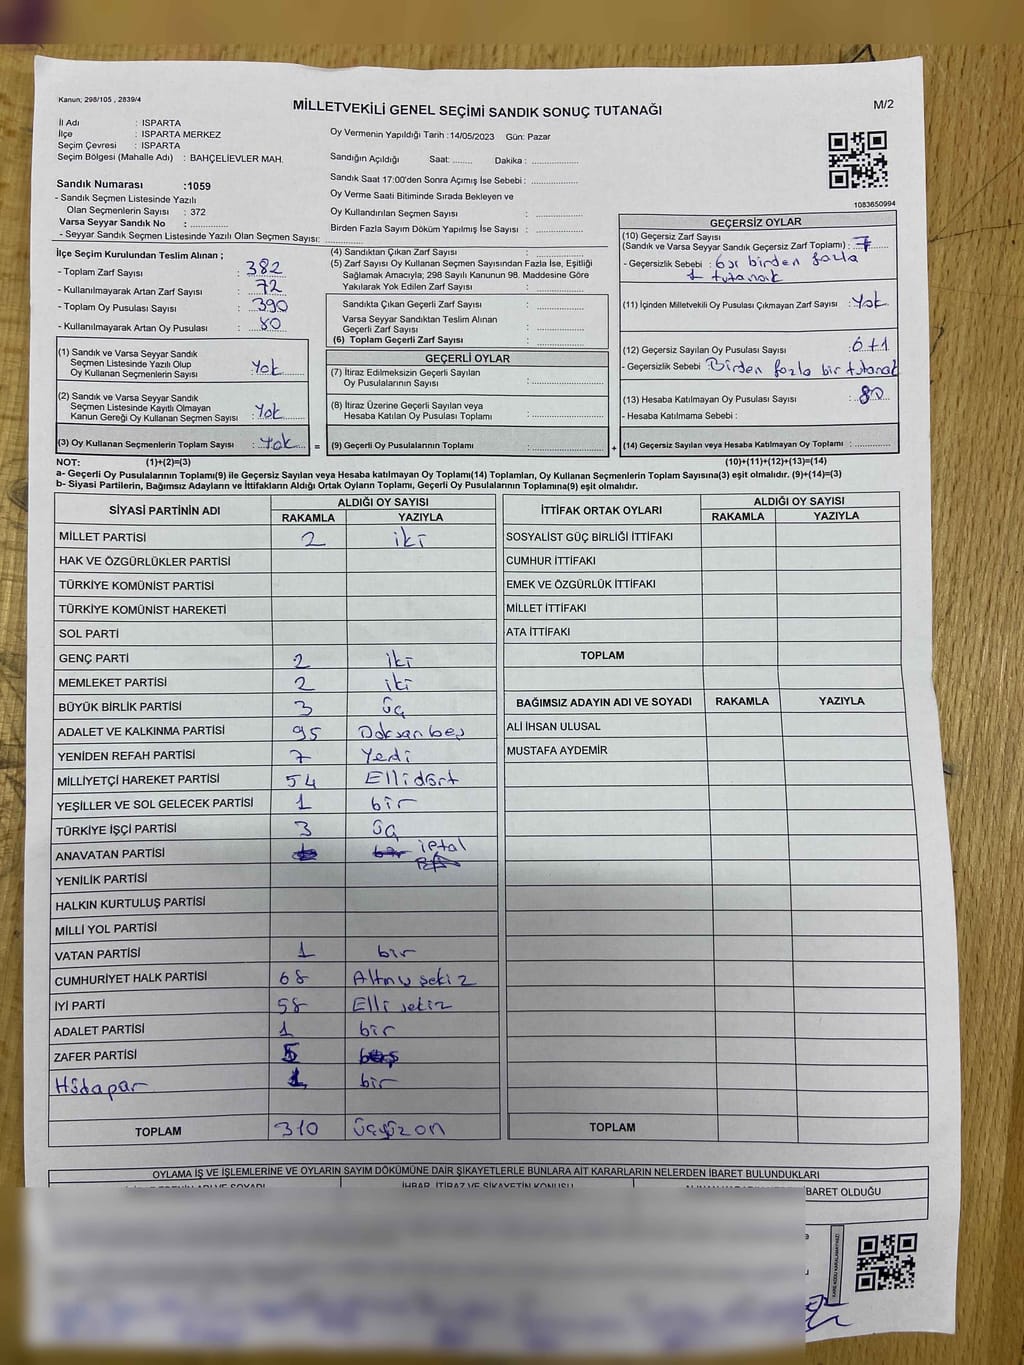 Kanun; 298/105 , 2839/4
MİLLETVEKİLİ GENEL SEÇİMİ SANDIK SONUÇ TUTANAĞI
M/2
İl Adı : ISPARTA
İlçe : ISPARTA MERKEZ
Seçim Çevresi : ISPARTA
Seçim Bölgesi (Mahalle Adı) : BAHÇELİEVLER MAH.
Sandık Numarası :1059
- Sandık Seçmen Listesinde Yazılı
Olan Seçmenlerin Sayısı : 372
Varsa Seyyar Sandık No : ..............
- Seyyar Sandık Seçmen Listesinde Yazılı Olan Seçmen Sayısı: ..............
Oy Vermenin Yapıldığı Tarih : 14/05/2023 Gün: Pazar
Sandığın Açıldığı Saat: ........ Dakika : ..............
Sandık Saat 17:00'den Sonra Açımış İse Sebebi : ..............
Oy Verme Saati Bitiminde Sırada Bekleyen ve
Oy Kullandırılan Seçmen Sayısı : ..............
Birden Fazla Sayım Döküm Yapılmış İse Sayısı : ..............
1083650994
İlçe Seçim Kurulundan Teslim Alınan ;
- Toplam Zarf Sayısı : 382
- Kullanılmayarak Artan Zarf Sayısı : 72
- Toplam Oy Pusulası Sayısı : 390
- Kullanılmayarak Artan Oy Pusulası : 80
(1) Sandık ve Varsa Seyyar Sandık
Seçmen Listesinde Yazılı Olup
Oy Kullanan Seçmenlerin Sayısı : Yok
(2) Sandık ve Varsa Seyyar Sandık
Seçmen Listesinde Kayıtlı Olmayan
Kanun Gereği Oy Kullanan Seçmen Sayısı : Yok
(3) Oy Kullanan Seçmenlerin Toplam Sayısı : Yok =
(4) Sandıktan Çıkan Zarf Sayısı : ..............
(5) Zarf Sayısı Oy Kullanan Seçmen Sayısından Fazla İse, Eşitliği
Sağlamak Amacıyla; 298 Sayılı Kanunun 98. Maddesine Göre
Yakılarak Yok Edilen Zarf Sayısı : ..............
Sandıkta Çıkan Geçerli Zarf Sayısı : ..............
Varsa Seyyar Sandıktan Teslim Alınan
Geçerli Zarf Sayısı : ..............
(6) Toplam Geçerli Zarf Sayısı : ..............
GEÇERLİ OYLAR
(7) İtiraz Edilmeksizin Geçerli Sayılan
Oy Pusulalarının Sayısı : ..............
(8) İtiraz Üzerine Geçerli Sayılan veya
Hesaba Katılan Oy Pusulası Toplamı : ..............
(9) Geçerli Oy Pusulalarının Toplamı : .............. +
GEÇERSİZ OYLAR
(10) Geçersiz Zarf Sayısı
(Sandık ve Varsa Seyyar Sandık Geçersiz Zarf Toplamı) : 7
- Geçersizlik Sebebi : 6sı birden fazla
1 tutanak
(11) İçinden Milletvekili Oy Pusulası Çıkmayan Zarf Sayısı : Yok
(12) Geçersiz Sayılan Oy Pusulası Sayısı : 6+1
- Geçersizlik Sebebi Birden fazla bir tutanak
(13) Hesaba Katılmayan Oy Pusulası Sayısı : 80
- Hesaba Katılmama Sebebi :
(14) Geçersiz Sayılan veya Hesaba Katılmayan Oy Toplamı : ..............
NOT: (1)+(2)=(3) (10)+(11)+(12)+(13)=(14)
a- Geçerli Oy Pusulalarının Toplamı(9) ile Geçersiz Sayılan veya Hesaba katılmayan Oy Toplamı(14) Toplamları, Oy Kullanan Seçmenlerin Toplam Sayısına(3) eşit olmalıdır. (9)+(14)=(3)
b- Siyasi Partilerin, Bağımsız Adayların ve İttifakların Aldığı Ortak Oyların Toplamı, Geçerli Oy Pusulalarının Toplamına(9) eşit olmalıdır.
SİYASİ PARTİNİN ADI ALDIĞI OY SAYISI
RAKAMLA YAZIYLA
MİLLET PARTİSİ 2 iki
HAK VE ÖZGÜRLÜKLER PARTİSİ
TÜRKİYE KOMÜNİST PARTİSİ
TÜRKİYE KOMÜNİST HAREKETİ
SOL PARTİ
GENÇ PARTİ 2 iki
MEMLEKET PARTİSİ 2 iki
BÜYÜK BİRLİK PARTİSİ 3 üç
ADALET VE KALKINMA PARTİSİ 95 Doksan beş
YENİDEN REFAH PARTİSİ 7 Yedi
MİLLİYETÇİ HAREKET PARTİSİ 54 Elli dört
YEŞİLLER VE SOL GELECEK PARTİSİ 1 bir
TÜRKİYE İŞÇİ PARTİSİ 3 üç
ANAVATAN PARTİSİ bir iptal
YENİLİK PARTİSİ
HALKIN KURTULUŞ PARTİSİ
MİLLİ YOL PARTİSİ
VATAN PARTİSİ 1 bir
CUMHURİYET HALK PARTİSİ 68 Altmış sekiz
İYİ PARTİ 58 Elli sekiz
ADALET PARTİSİ 1 bir
ZAFER PARTİSİ 5 beş
Hüdapar 1 bir
TOPLAM 310 üçyüz on
İTTİFAK ORTAK OYLARI ALDIĞI OY SAYISI
RAKAMLA YAZIYLA
SOSYALİST GÜÇ BİRLİĞİ İTTİFAKI
CUMHUR İTTİFAKI
EMEK VE ÖZGÜRLÜK İTTİFAKI
MİLLET İTTİFAKI
ATA İTTİFAKI
TOPLAM
BAĞIMSIZ ADAYIN ADI VE SOYADI RAKAMLA YAZIYLA
ALİ İHSAN ULUSAL
MUSTAFA AYDEMİR
TOPLAM
OYLAMA İŞ VE İŞLEMLERİNE VE OYLARIN SAYIM DÖKÜMÜNE DAİR ŞİKAYETLERLE BUNLARA AİT KARARLARIN NELERDEN İBARET BULUNDUKLARI
İHBAR, İTİRAZ VE ŞİKAYETİN KONUSU
İBARET OLDUĞU